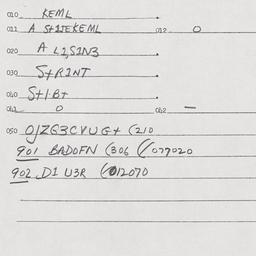 010. KEML
011 A St1TEKEML 012 0
020 A L2,S1N3
030 S+R1NT
040 S+1B+
041 0 042 —
050 0JZG3CVUG+ (210
901 BADOFN (306 (/077020
902 D1 U3R (/012070